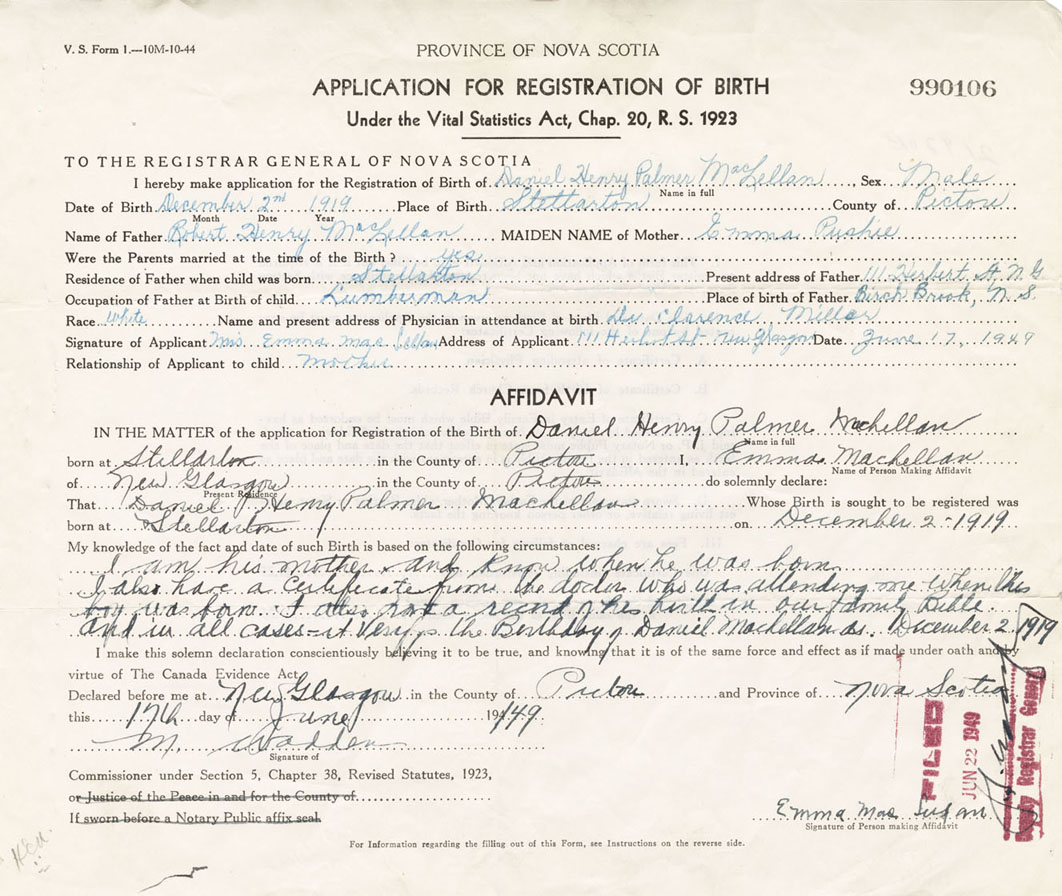 V. S. Form 1.—10M-10-44
PROVINCE OF NOVA SCOTIA
APPLICATION FOR REGISTRATION OF BIRTH
990106
Under the Vital Statistics Act, Chap. 20, R. S. 1923
TO THE REGISTRAR GENERAL OF NOVA SCOTIA
I hereby make application for the Registration of Birth of Daniel Henry Palmer MacLellan, Sex Male
Name in full
Date of Birth December 2nd 1919 Place of Birth Stellarton County of Pictou
Month Date Year
Name of Father Robert Henry MacLellan MAIDEN NAME of Mother Emma Pushie
Were the Parents married at the time of the Birth? yes
Residence of Father when child was born Stellarton Present address of Father 111 Herbert St. N.G
Occupation of Father at Birth of child Lumberman Place of birth of Father Birch Brook, N. S.
Race white Name and present address of Physician in attendance at birth Dr. Clarence Millar
Signature of Applicant Mrs. Emma MacLellan Address of Applicant 111 Herbert St. New Glasgow Date June 17, 1949
Relationship of Applicant to child Mother
AFFIDAVIT
IN THE MATTER of the application for Registration of the Birth of Daniel Henry Palmer MacLellan
Name in full
born at Stellarton in the County of Pictou I, Emma MacLellan
Name of Person Making Affidavit
of New Glasgow in the County of Pictou do solemnly declare:
Present Residence
That Daniel Henry Palmer MacLellan Whose Birth is sought to be registered was
born at Stellarton on December 2 - 1919
My knowledge of the fact and date of such Birth is based on the following circumstances:
I am his mother and know when he was born
I also have a certificate from the doctor who was attending me when this
boy was born. I also have a record of his birth in our family Bible.
And in all cases - it verifys the Birthday of Daniel MacLellan as December 2 1919
I make this solemn declaration conscientiously believing it to be true, and knowing that it is of the same force and effect as if made under oath and by
virtue of The Canada Evidence Act.
Declared before me at New Glasgow in the County of Pictou and Province of Nova Scotia
this 17th day of June 1949
M. Wadden
Signature of
Commissioner under Section 5, Chapter 38, Revised Statutes, 1923,
or Justice of the Peace in and for the County of
If sworn before a Notary Public affix seal
FILED
JUN 22 1949
Deputy Registrar General
Emma MacLellan
Signature of Person making Affidavit
For Information regarding the filling out of this Form, see Instructions on the reverse side.